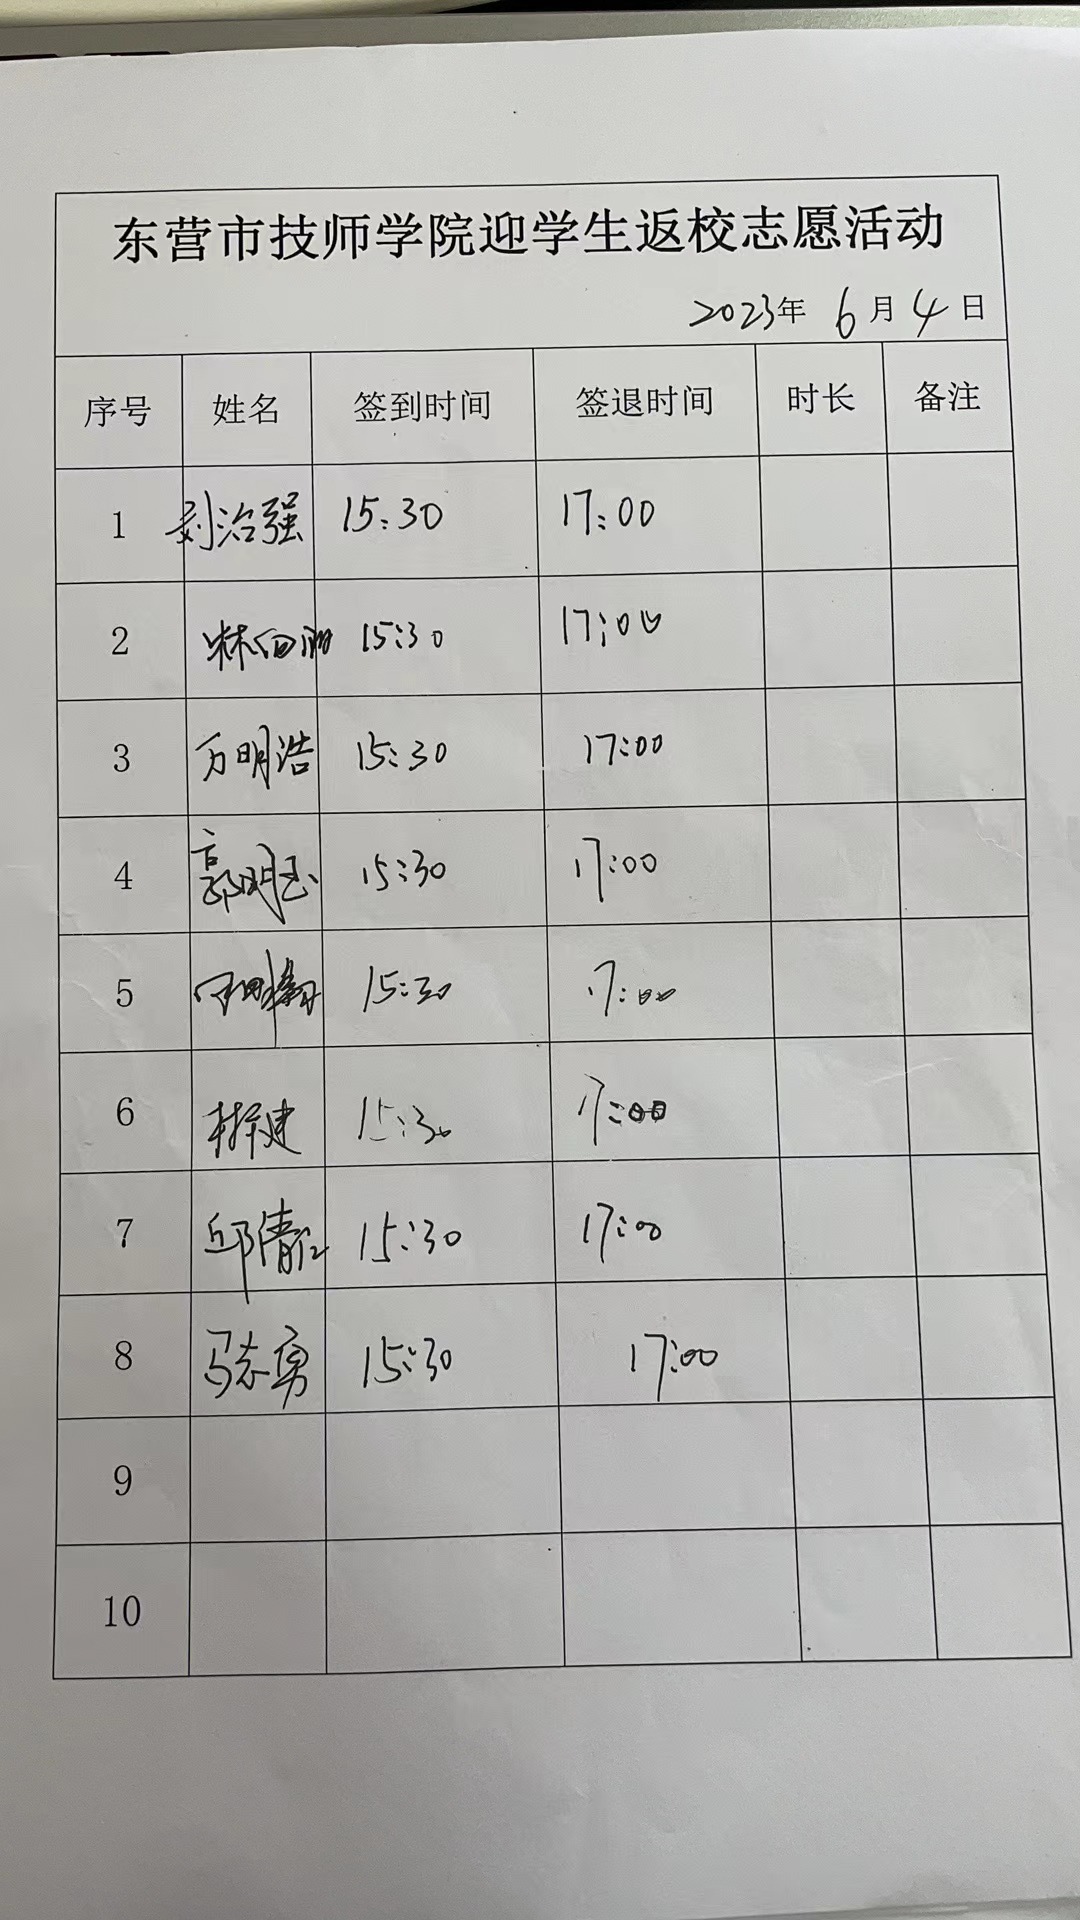 东营市技师学院迎学生返校志愿活动
2023年 6月4日
序号 姓名 签到时间 签退时间 时长 备注
1 刘治强 15:30 17:00
2 15:30 17:00
3 万明浩 15:30 17:00
4 郭明玉 15:30 17:00
5 15:30 17:00
6 15:30 17:00
7 邱清 15:30 17:00
8 马志勇 15:30 17:00
9
10